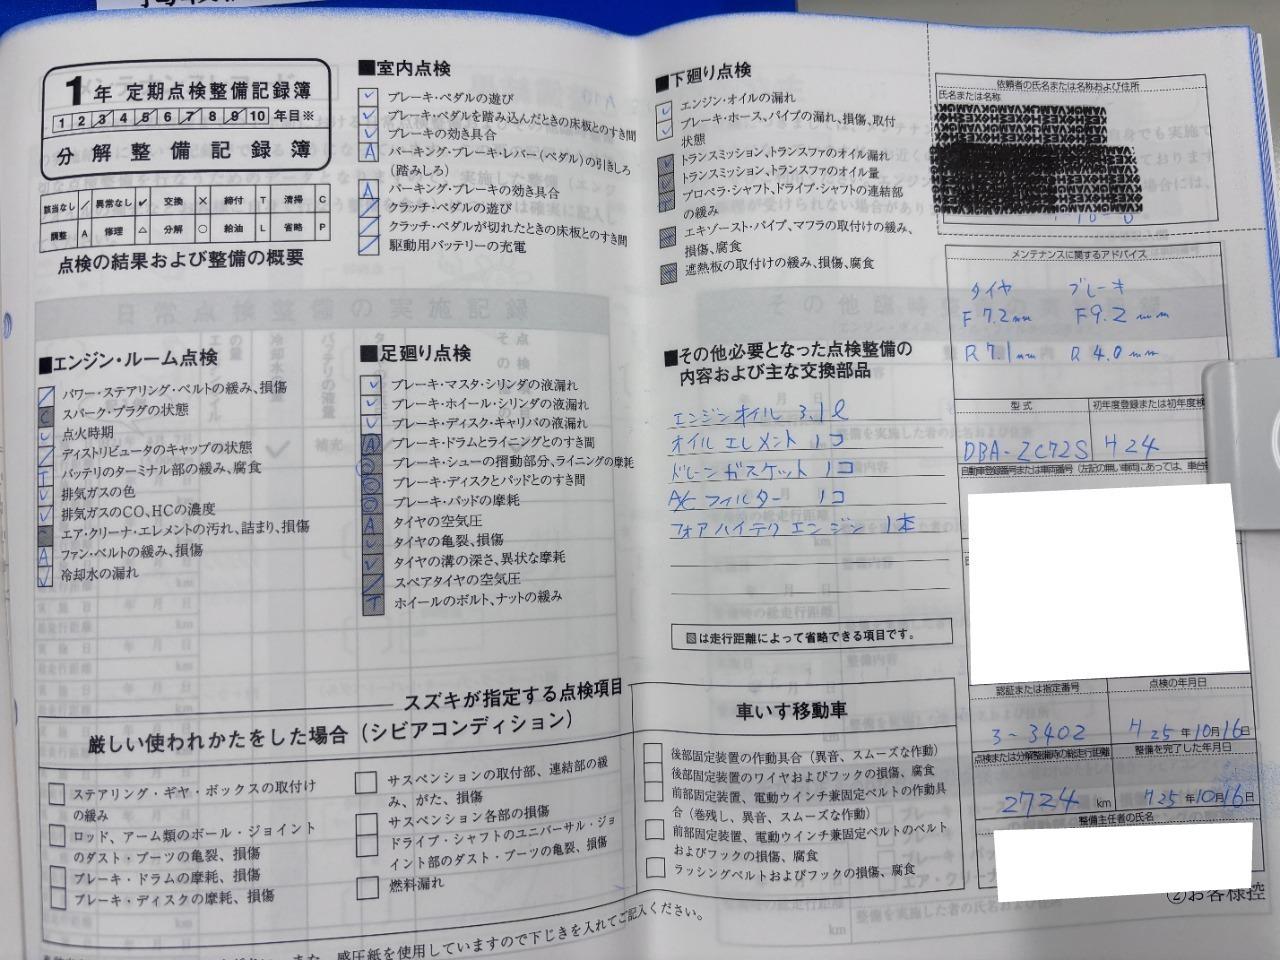 1年 定期点検整備記録簿
1 2 3 4 5 6 7 8 9 10 年目※
分解整備記録簿
該当なし / 異常なし ✓ 交換 × 締付 T 清掃 C
調整 A 修理 △ 分解 ○ 給油 L 省略 P
点検の結果および整備の概要
■エンジン・ルーム点検
パワー・ステアリング・ベルトの緩み、損傷
C スパーク・プラグの状態
点火時期
ディストリビュータのキャップの状態
T バッテリのターミナル部の緩み、腐食
排気ガスの色
排気ガスのCO、HCの濃度
エア・クリーナ・エレメントの汚れ、詰まり、損傷
A ファン・ベルトの緩み、損傷
冷却水の漏れ
■室内点検
ブレーキ・ペダルの遊び
ブレーキ・ペダルを踏み込んだときの床板とのすき間
ブレーキの効き具合
A パーキング・ブレーキ・レバー(ペダル)の引きしろ
(踏みしろ)
A パーキング・ブレーキの効き具合
クラッチ・ペダルの遊び
クラッチ・ペダルが切れたときの床板とのすき間
駆動用バッテリーの充電
■足廻り点検
ブレーキ・マスタ・シリンダの液漏れ
ブレーキ・ホイール・シリンダの液漏れ
ブレーキ・ディスク・キャリパの液漏れ
A ブレーキ・ドラムとライニングとのすき間
ブレーキ・シューの摺動部分、ライニングの摩耗
ブレーキ・ディスクとパッドとのすき間
ブレーキ・パッドの摩耗
A タイヤの空気圧
タイヤの亀裂、損傷
タイヤの溝の深さ、異状な摩耗
スペアタイヤの空気圧
T ホイールのボルト、ナットの緩み
■下廻り点検
エンジン・オイルの漏れ
ブレーキ・ホース、パイプの漏れ、損傷、取付
状態
トランスミッション、トランスファのオイル漏れ
トランスミッション、トランスファのオイル量
プロペラ・シャフト、ドライブ・シャフトの連結部
の緩み
エキゾースト・パイプ、マフラの取付けの緩み、
損傷、腐食
遮熱板の取付けの緩み、損傷、腐食
■その他必要となった点検整備の
内容および主な交換部品
エンジンオイル 3.1ℓ
オイルエレメント 1コ
ドレーンガスケット 1コ
A/Cフィルター 1コ
フォアハイテクエンジン 1本
は走行距離によって省略できる項目です。
依頼者の氏名または名称および住所
氏名または名称
メンテナンスに関するアドバイス
タイヤ ブレーキ
F 7.2mm F 9.2mm
R 7.1mm R 4.0mm
型式 初年度登録または初年度検
DBA-ZC72S H24
自動車登録番号または車両番号(左記の無い車両にあっては、車台
認証または指定番号 点検の年月日
3-3402 H25年10月16日
点検または分解整備時の総走行距離 整備を完了した年月日
2724 km 25年10月16日
整備主任者の氏名
②お客様控
スズキが指定する点検項目
厳しい使われかたをした場合(シビアコンディション)
ステアリング・ギヤ・ボックスの取付け
の緩み
ロッド、アーム類のボール・ジョイント
のダスト・ブーツの亀裂、損傷
ブレーキ・ドラムの摩耗、損傷
ブレーキ・ディスクの摩耗、損傷
サスペンションの取付部、連結部の緩
み、がた、損傷
サスペンション各部の損傷
ドライブ・シャフトのユニバーサル・ジョ
イント部のダスト・ブーツの亀裂、損傷
燃料漏れ
車いす移動車
後部固定装置の作動具合(異音、スムーズな作動)
後部固定装置のワイヤおよびフックの損傷、腐食
前部固定装置、電動ウインチ兼固定ベルトの作動具
合(巻残し、異音、スムーズな作動)
前部固定装置、電動ウインチ兼固定ベルトのベルト
およびフックの損傷、腐食
ラッシングベルトおよびフックの損傷、腐食
感圧紙を使用していますので下じきを入れてご記入ください。